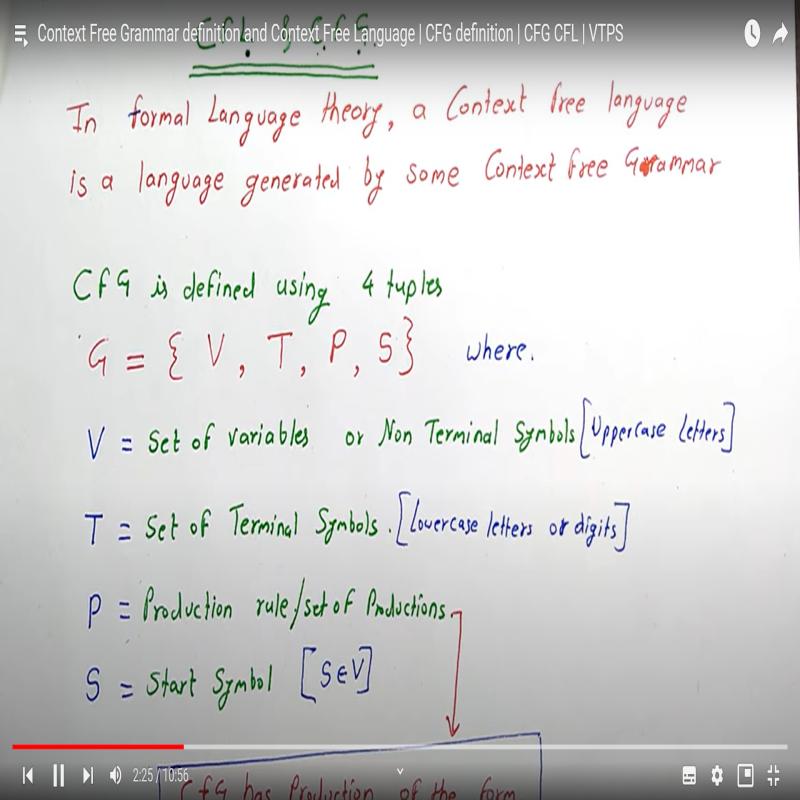 Context Free Grammar definition and Context Free Language | CFG definition | CFG CFL | VTPS
CFL & CFG.
In formal Language theory, a Context free language
is a language generated by some Context free Grammar
CFG is defined using 4 tuples
G = { V, T, P, S} where.
V = Set of variables or Non Terminal Symbols [Uppercase Letters]
T = Set of Terminal Symbols. [Lowercase letters or digits]
P = Production rule/set of Productions
S = Start Symbol [S∈V]
2:25 / 10:56
CFG has Production of the form